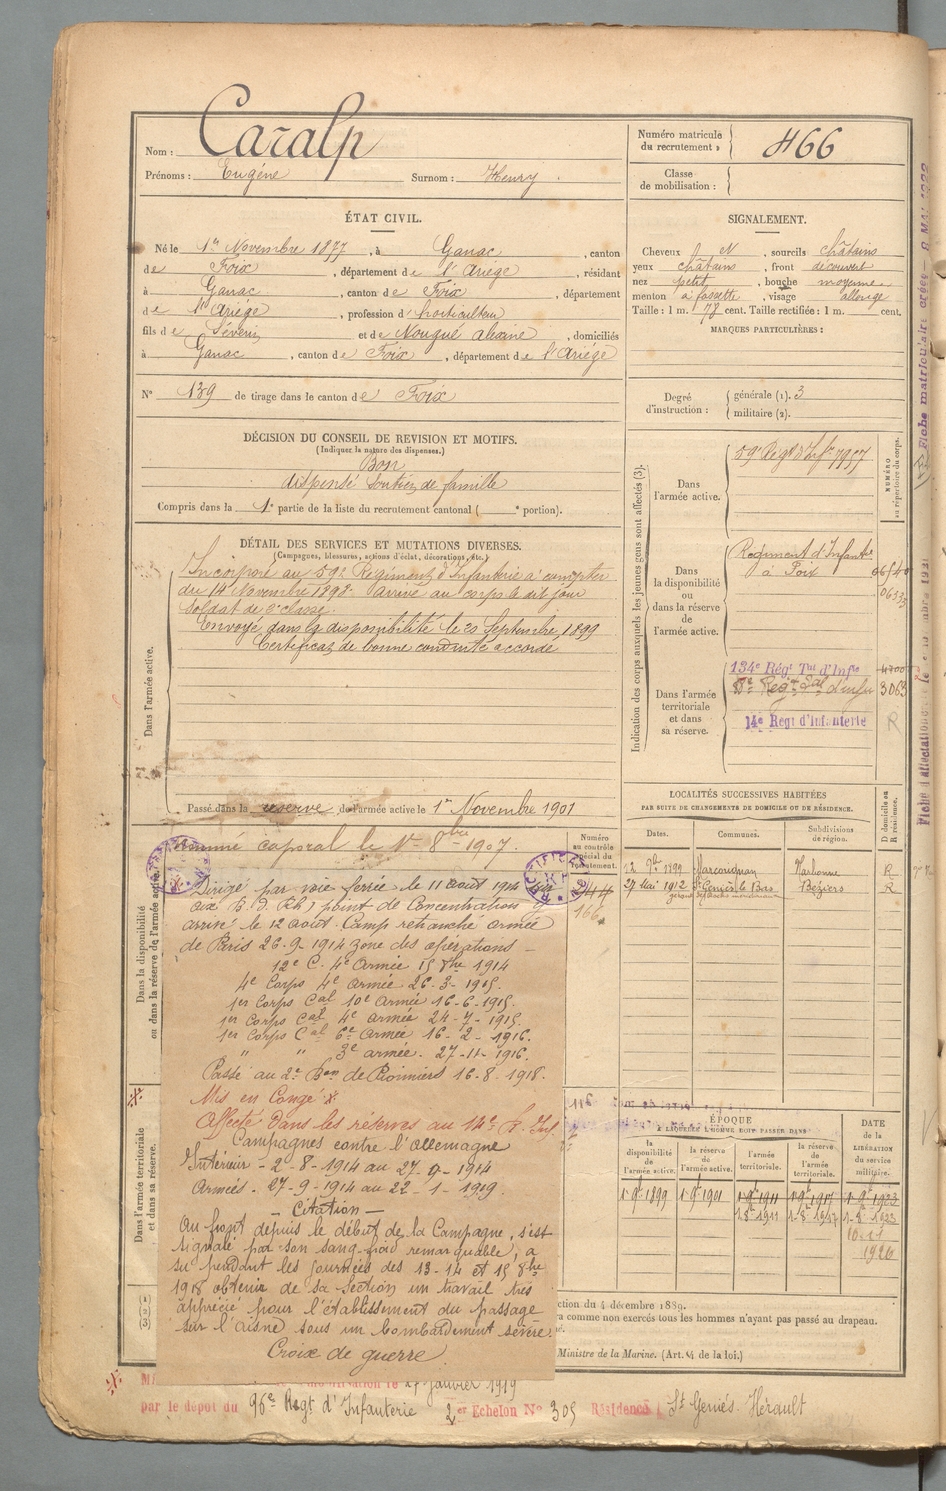 Nom : Caralp
Prénoms : Eugène Surnom : Henry.
Numéro matricule
du recrutement : 466
Classe
de mobilisation :
ÉTAT CIVIL.
Né le 1er Novembre 1877, à Ganac, canton
de Foix, département de l'Ariège, résidant
à Ganac, canton de Foix, département
de l'Ariège, profession d'horticulteur
fils de Séverin et de Nougué alexine, domiciliés
à Ganac, canton de Foix, département de l'Ariège
N° 139 de tirage dans le canton de Foix
SIGNALEMENT.
Cheveux N, sourcils châtains
yeux châtains, front découvert
nez petit, bouche moyenne
menton à fossette, visage allongé
Taille : 1 m. 78 cent. Taille rectifiée : 1 m. cent.
MARQUES PARTICULIÈRES :
Degré
d'instruction :
générale (1). 3
militaire (2).
DÉCISION DU CONSEIL DE REVISION ET MOTIFS.
(Indiquer la nature des dispenses.)
Bon
dispensé soutien de famille
Compris dans la 1e partie de la liste du recrutement cantonal ( e portion).
DÉTAIL DES SERVICES ET MUTATIONS DIVERSES.
(Campagnes, blessures, actions d'éclat, décorations, etc.)
Dans l'armée active.
Incorporé au 59e Régiment d'Infanterie à compter
du 14 Novembre 1898. Arrivé au corps le dit jour
soldat de 2e classe.
Envoyé dans la disponibilité le 20 Septembre 1899
Certificat de bonne conduite accordé
Passé dans la réserve de l'armée active le 1er Novembre 1901
Indication des corps auxquels les jeunes gens sont affectés (3).
NUMÉRO
au répertoire du corps.
Dans
l'armée active.
59e Régt d'Infie
Dans
la disponibilité
ou
dans la réserve
de
l'armée active.
Régiment d'Infanterie
à Foix
Dans l'armée
territoriale
et dans
sa réserve.
134e Régt Tal d'Infie
Régt Tal d'Infie 3063
14e Régt d'Infanterie R
LOCALITÉS SUCCESSIVES HABITÉES
PAR SUITE DE CHANGEMENTS DE DOMICILE OU DE RÉSIDENCE.
Dates. Communes. Subdivisions
de région.
D domicile ou
R résidence.
12 9bre 1899 Marcorignan Narbonne R
27 Mai 1912 St Geniès le Bas Béziers R
Dans la disponibilité
ou dans la réserve de l'armée active.
Numéro
au contrôle
spécial du
recrutement.
Nommé caporal le 1er 8bre 1907.
RECTIFICATION
Dirigé par voie ferrée le 11 Août 1914
arrivé le 12 Août. Camp retranché armée
de Paris 26.9.1914 zone des opérations -
12e C. 4e Armée 15 8bre 1914
4e Corps 4e Armée 26-3-1915.
1er Corps Cal 10e Armée 16-6-1915.
1er Corps Cal 4e Armée 24-7-1915.
1er Corps Cal 6e Armée 16-2-1916.
" " 3e armée. 27-11-1916.
Passé au 2e Bon de Pionniers 16-8-1918.
Mis en Congé
Affecté dans les réserves au 14e R. Inf
Campagnes contre l'Allemagne
Intérieur - 2-8-1914 au 27-9-1914
Armées - 27-9-1914 au 22-1-1919.
- Citation -
Au front depuis le début de la Campagne, s'est
signalé par son sang-froid remarquable, a
su pendant les journées des 13-14 et 15 8bre
1918 obtenir de sa Section un travail très
apprécié pour l'établissement du passage
sur l'Aisne sous un bombardement sévère.
Croix de guerre
Dans l'armée territoriale
et dans sa réserve.
ÉPOQUE
A LAQUELLE L'HOMME DOIT PASSER DANS
la
disponibilité
de
l'armée active.
la
réserve
de
l'armée active.
l'armée
territoriale.
la réserve
de
l'armée
territoriale.
DATE
de la
LIBÉRATION
du service
militaire.
1 9e 1899 1 9e 1901 1 9e 1911 1 9e 1917 1 9e 1923
1-8e 1911 1-8e 1917 1-8e 1923
1926
(1)
(2)
(3)
ction du 4 décembre 1889.
a comme non exercés tous les hommes n'ayant pas passé au drapeau.
Ministre de la Marine. (Art. 4 de la loi.)
27 janvier 1919
par le dépôt du 96e Régt d'Infanterie 2er Echelon N° 305 Résidence : St Geniès. Hérault